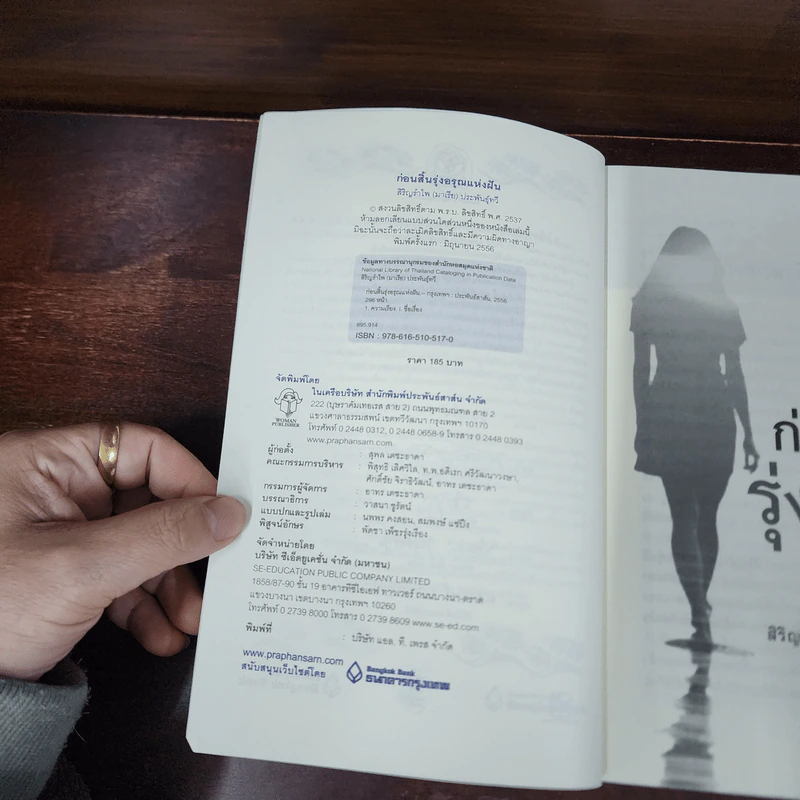 ก่อนสิ้นรุ่งอรุณแห่งฝัน
สิริญรำไพ (มาเรีย) ประพันธุ์ทวี
© สงวนลิขสิทธิ์ตาม พ.ร.บ. ลิขสิทธิ์ พ.ศ. 2537
ห้ามลอกเลียนแบบส่วนใดส่วนหนึ่งของหนังสือเล่มนี้
มิฉะนั้นจะถือว่าละเมิดลิขสิทธิ์และมีความผิดทางอาญา
พิมพ์ครั้งแรก : มิถุนายน 2556
ข้อมูลทางบรรณานุกรมของสำนักหอสมุดแห่งชาติ
National Library of Thailand Cataloging in Publication Data
สิริญรำไพ (มาเรีย) ประพันธุ์ทวี
ก่อนสิ้นรุ่งอรุณแห่งฝัน.-- กรุงเทพฯ : ประพันธ์สาส์น, 2556
296 หน้า.
1. ความเรียง. I. ชื่อเรื่อง
895.914
ISBN : 978-616-510-517-0
ราคา 185 บาท
จัดพิมพ์โดย
WOMAN
PUBLISHER
ในเครือบริษัท สำนักพิมพ์ประพันธ์สาส์น จำกัด
222 (บุษราคัมเทอเรส สาย 2) ถนนพุทธมณฑล สาย 2
แขวงศาลาธรรมสพน์ เขตทวีวัฒนา กรุงเทพฯ 10170
โทรศัพท์ 0 2448 0312, 0 2448 0658-9 โทรสาร 0 2448 0393
www.praphansarn.com
ผู้ก่อตั้ง : สุพล เตชะธาดา
คณะกรรมการบริหาร : พิสุทธิ์ เลิศวิไล, ท.พ.อติเรก ศรีวัฒนาวงษา,
ศักดิ์ชัย จิราธิวัฒน์, อาทร เตชะธาดา
กรรมการผู้จัดการ : อาทร เตชะธาดา
บรรณาธิการ : วาสนา ชูรัตน์
แบบปกและรูปเล่ม : นพพร คงสอน, สมพงษ์ แซ่ปึง
พิสูจน์อักษร : พัดชา เพ็ชรรุ่งเรือง
จัดจำหน่ายโดย
บริษัท ซีเอ็ดยูเคชั่น จำกัด (มหาชน)
SE-EDUCATION PUBLIC COMPANY LIMITED
1858/87-90 ชั้น 19 อาคารทีซีไอเอฟ ทาวเวอร์ ถนนบางนา-ตราด
แขวงบางนา เขตบางนา กรุงเทพฯ 10260
โทรศัพท์ 0 2739 8000 โทรสาร 0 2739 8609 www.se-ed.com
พิมพ์ที่ : บริษัท แอล. ที. เพรส จำกัด
www.praphansarn.com
สนับสนุนเว็บไซต์โดย
Bangkok Bank
ธนาคารกรุงเทพ
ก่
รุ่ง
สิริญ